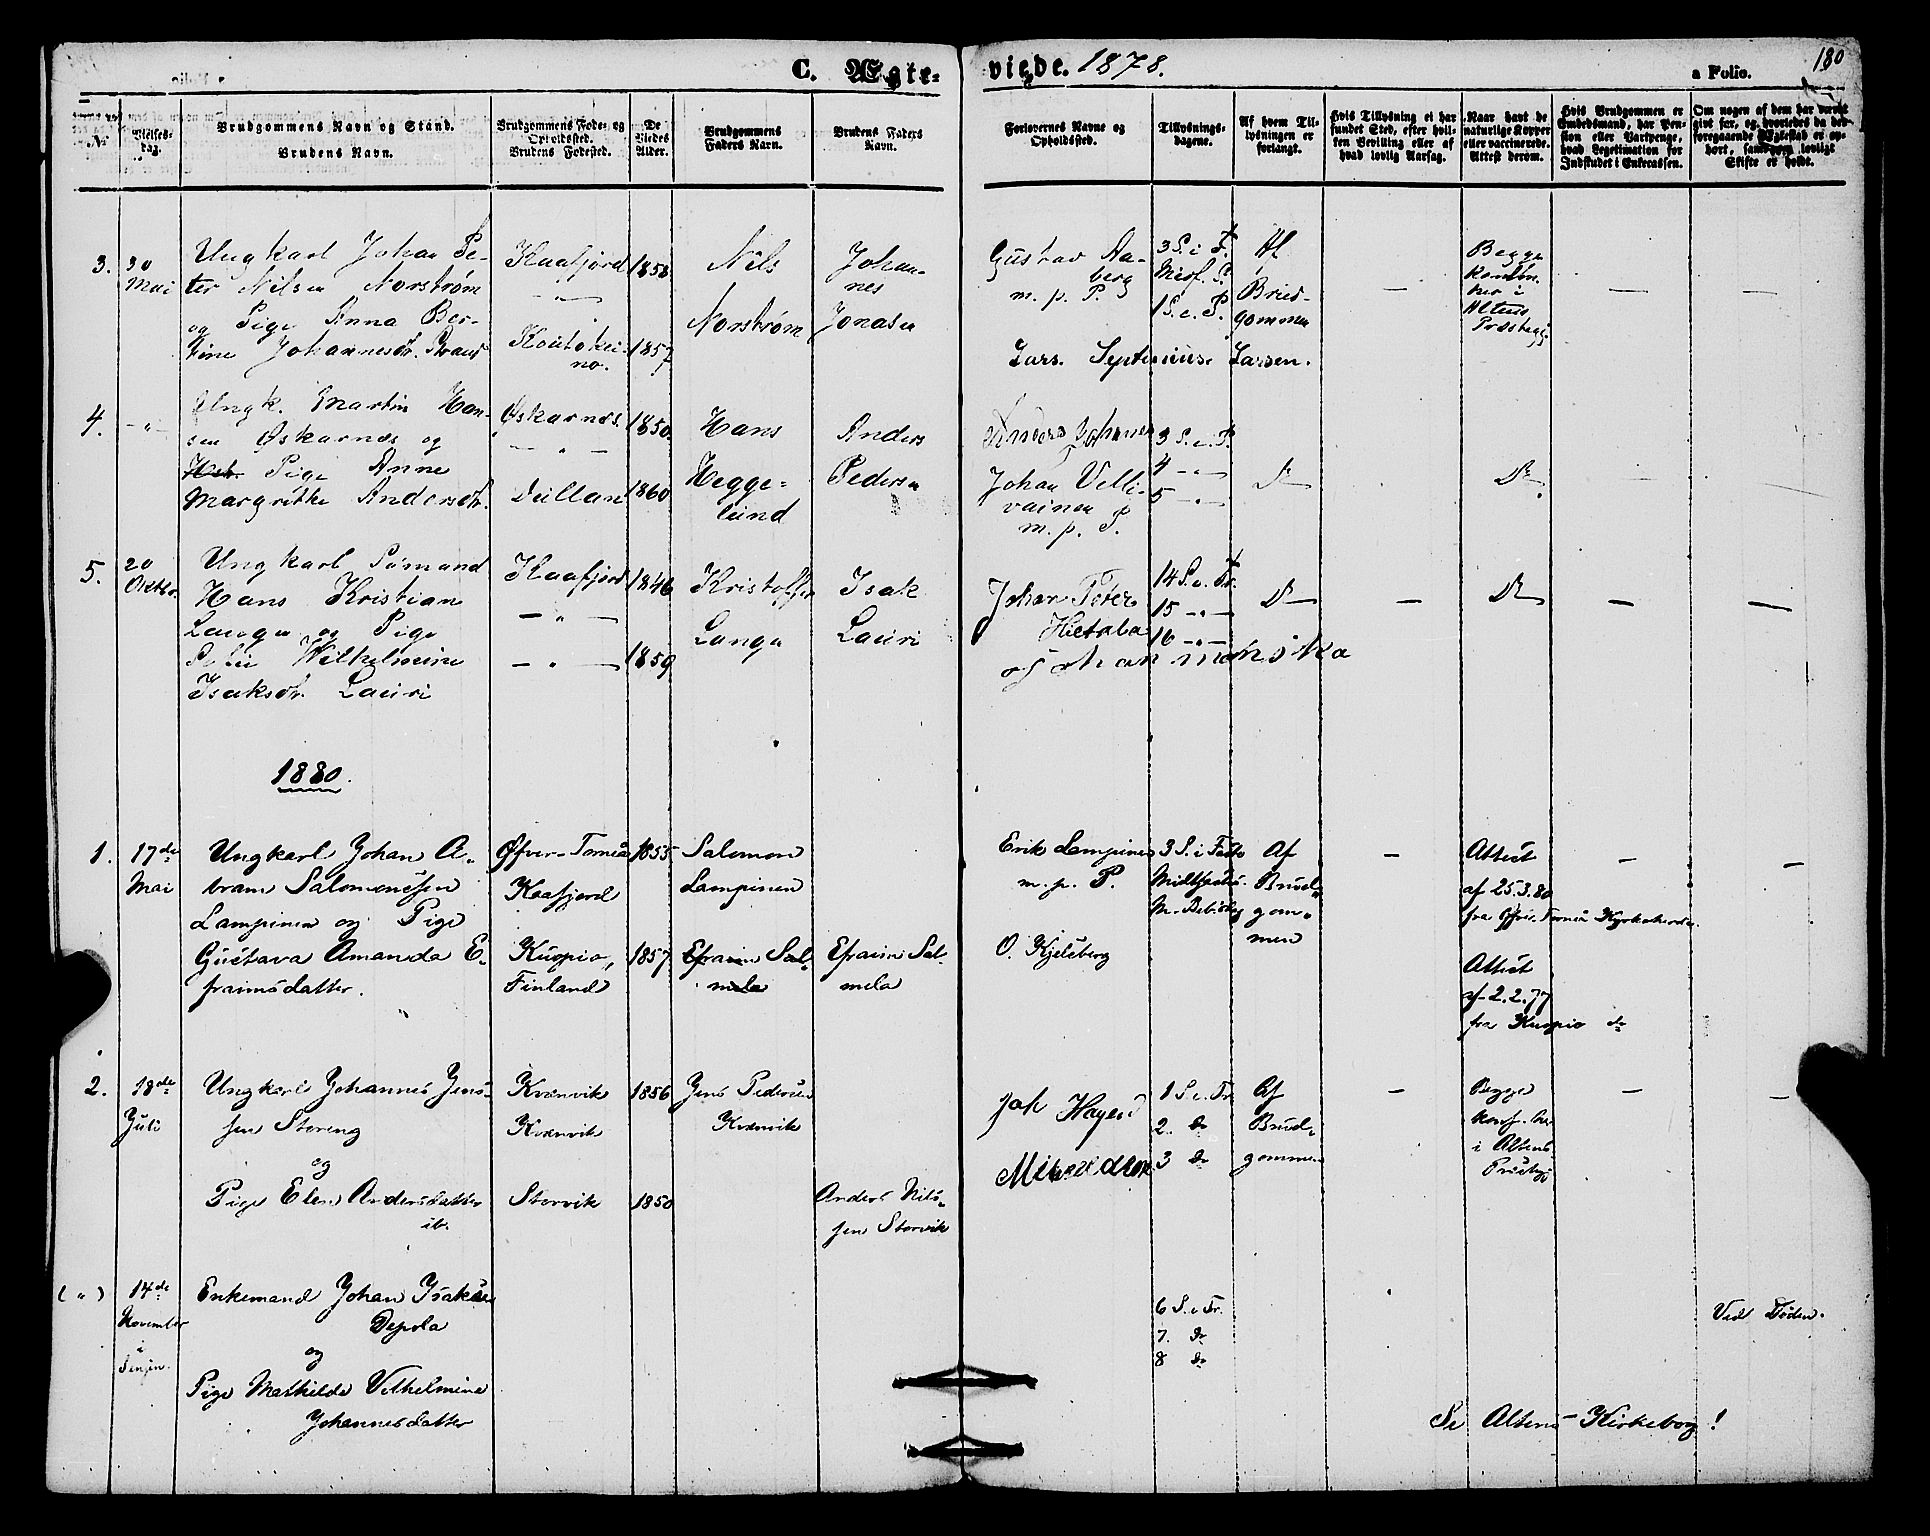 C. Ægte-
viede. 1878.
a Folio.
180
No.
Vielses-
dag.
Brudgommens Navn og Stand.
Brudens Navn.
Brudgommens Føde- og
Opholdssted.
Brudens Fødested.
De
Viedes
Alder.
Brudgommens
Faders Navn.
Brudens Faders
Navn.
Forlovernes Navne og
Opholdssted.
Tillysnings-
dagene.
Af hvem Til-
lysningen er
forlangt.
Hvis Tillysning ei har
fundet Sted, efter hvil-
ken Bevilling eller af
hvad lovlig Aarsag.
Naar havt de
naturlige Kopper
eller vaccinerede.
Attest derom.
Hvis Brudgommen er
Embedsmand, har Pen-
sion eller Vartpenge,
hvad Legitimation for
Indskudet i Enkecassen.
Om nogen af dem har været
gift før, og hvorledes da det
foregaaende Ægteskab er op-
hørt, samt om lovligt
Skifte er holdt.
3.
30
Mai
Ungkarl Johan Pe-
ter Nilsen Norstrøm
og Pige Anna Ber-
tine Johannesdr. Strand
Kaafjord
— " —
Koutokei-
no.
1858
1857
Nils
Norstrøm
Johan-
nes
Jonasen
Gustav Aa-
berg
m. p. P.
Lars Septimius Larsen.
3 S. i F.
Misf. S.
1 S. e. P.
Af
Brud-
gommen
—
Begge
Altens
Præstegj.
—
—
4.
- " -
Ungk. Martin Han-
sen Øskarnæs og
Pige Anne
Margrithe Andersdtr.
Øskarnæs.
— " —
1850.
1860
Hans
Hegge-
lund
Anders
Pedersen
Anders Johnsen
Johan Velli-
vainen
m. p. P.
3 S. e. P.
4 — " —
5 — " —
Do
Do
—
—
5.
20
Oktbr.
Ungkarl Sømand
Hans Kristian
Langen og Pige
Wilhelmine
Isaksdtr. Lauri
Kaafjord
— " —
— " —
1846
1859
Kristoffer
Langen
Isak
Lauri
Johan Peter
Hietala
14 S. e. Tr.
15 — " —
16 — " —
Do
—
Do
—
—
1880.
1.
17de
Mai
Ungkarl Johan A-
bram Salomonssen
Lampinen og Pige
Gustava Amanda E-
fraimsdatter.
Øfver-Torneå
Kaafjord
Kuopio,
Finland
1855
1857
Salomon
Lampinen
Efraim Sal-
mela
Efraim Sal-
mela
Erik Lampinen
m. p. P.
O. Kjelsberg
3 S. i Faste
Midtfaste
M. Bebud.
Af
Brud-
gom-
men
—
Attest
af 25.3.80
fra Øfver-Torneå Kyrkoherde.
Attest
af 2.2.77
fra Kuopio do
—
—
2.
18de
Juli
Ungkarl Johannes Jens-
sen Storeng
og
Pige Elen Andersdatter
ib.
Kvænvik
Kvænvik
Storvik
1856
1850
Jens Pedersen
Kvænvik
Anders Nils-
sen Storvik
Joh Hagen
1 S. e. Tr.
2. do
3 do
Af
Brud-
gommen
—
Begge
konf.
i Altens
Præstegj.
—
—
( " )
14de
November
i
Enkemand Johan Isaksen
Depola
og
Pige Mathilde Vilhelmina
Johannesdatter
6 S. e. Tr.
7. do
8 do
Ved Døden.
Se Altens-Kirkebog!